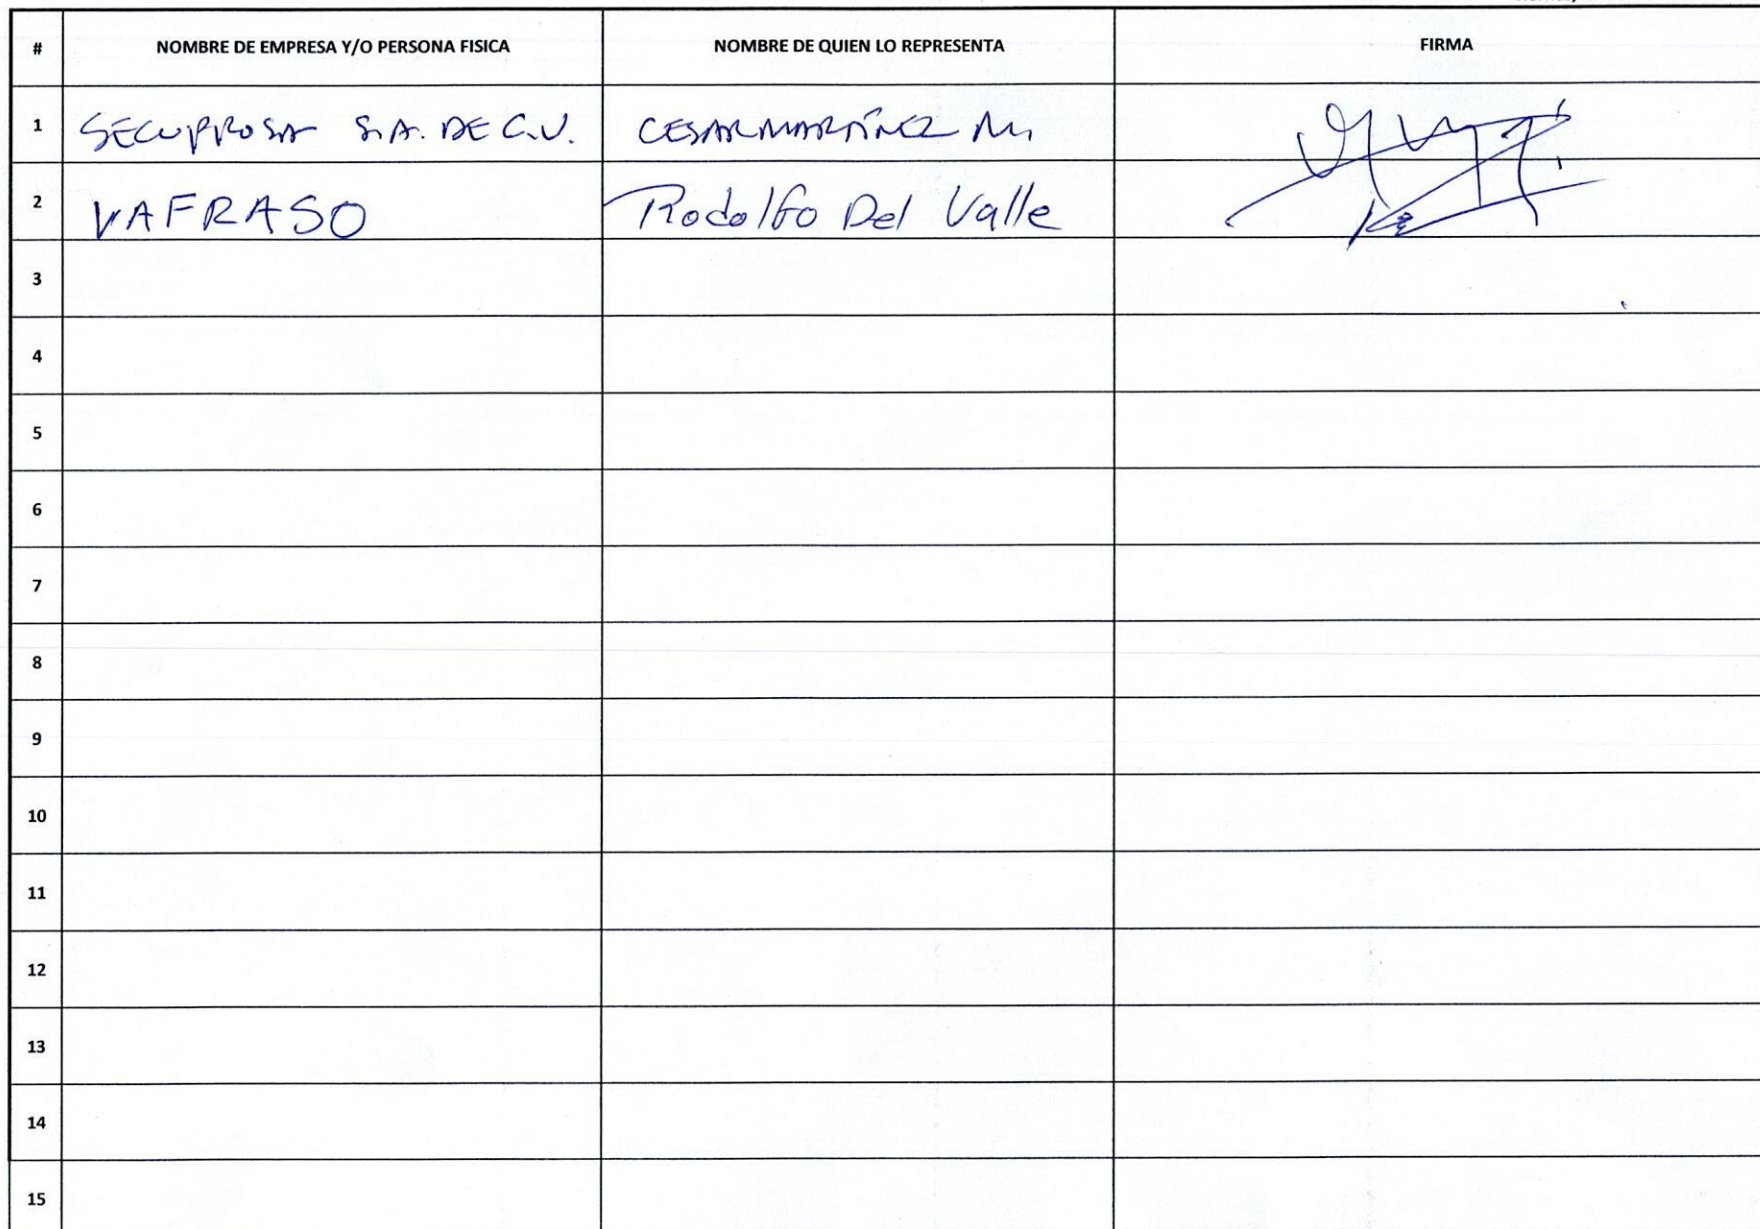 # NOMBRE DE EMPRESA Y/O PERSONA FISICA NOMBRE DE QUIEN LO REPRESENTA FIRMA
1 SECUPROSA S.A. DE C.V. CESAR MARTÍNEZ M.
2 VAFRASO Rodolfo Del Valle
3
4
5
6
7
8
9
10
11
12
13
14
15